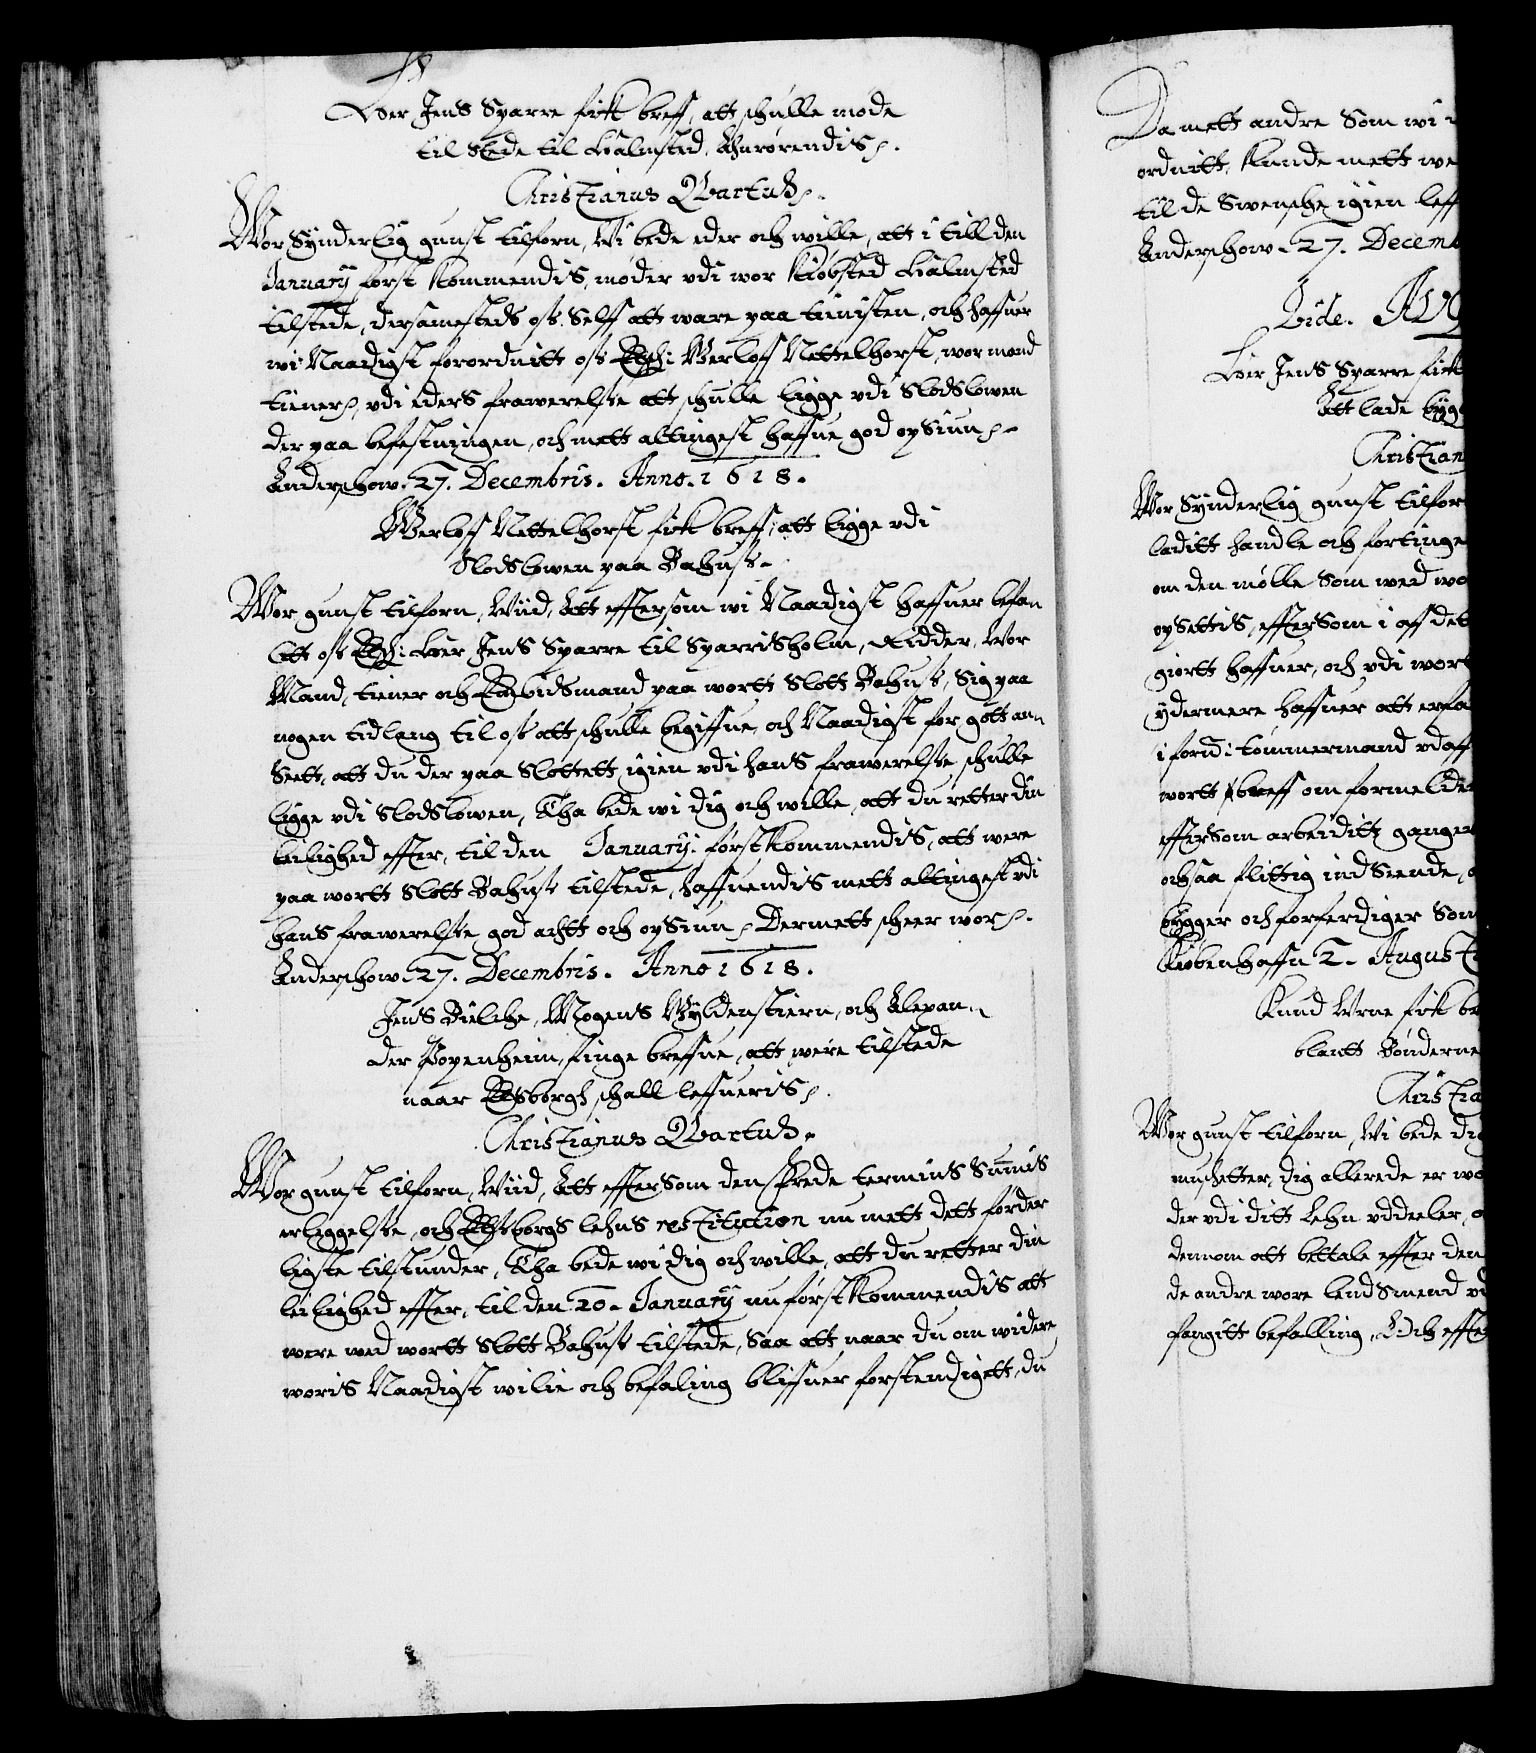 Her Jens Sparre fick breff, att schulle møde
til stede til Halmsted, Anrørendis.
Christianus Qvartus.
Wor Synderlig gunst tilforn, Wi bede eder och wille, att i till den
January først kommendis, møder vdi wor Kiøbsted Halmsted
tilstede, dersamesteds oss Selff att ware paa tienisten, och haffuer
wi Naadigst forordnitt oss Elsch: Werloff Nettelhorst, wor mand
tiener, vdi eders frawerelsse att schulle ligge vdi Slodslowen
der paa befestningen, och mett altingest haffue god opsiun.
Anderschow 27. Decembris. Anno. 1618.
Werloff Nettelhorst fick breff, att ligge vdi
Slodslowen paa Bahuss.
Wor gunst tilforn, Wiid, Att efftersom wi Naadigst haffuer befa-
litt oss Elsch: Her Jens Sparre til Sparrisholm, Ridder, Wor
Mand, tiener och Embidsmand paa wortt Slott Bahuss, Sig paa
nogen tid lang til oss att schulle begiffue, och Naadigst for gott an-
Seett, att du der paa Slottett igien vdi hans frawerelsse schulle
ligge vdi Slodslowen, Tha bede wi dig och wille, att du retter din
leilighed effter, til den January. først kommendis, att were
paa wortt Slott Bahuss tilstede, haffuendis mett altingest vdi
hans frawerelsse god achtt och opsiun. Dermett scheer wor.
Anderschow 27. Decembris. Anno 1618.
Jens Bielche, Mogens Gyldenstiern, och Alexan-
der Papenheim, finge breffue, att were tilstede
naar Elsborgh schall leffueris.
Christianus Qvartus.
Wor gunst tilforn, Wiid, Att effterSom den fierde termins Summis
erleggelsse, och Elssborgs lehns restitution nu mett dett forder
ligste tilstunder, Tha bede wi dig och wille, att du retter din
leilighed effter, til den 20. January nu først kommendis att
were wed wortt Slott Bahuss tilstede, Saa att naar du om widere
woris Naadigst wilie och befaling bliffuer forstendigett, du
Da mett andre Som wi
ordnitt, Kunde mett we
til de Swensche igien leff
Anderschow. 27. Decemb
Her Jens Sparre fick
Att lade bygg
Christian
Wor Synderlig gunst tilfor
laditt handle och fortinge
om den mølle Som wed wo
opsettis, effterSom i aff det
giortt haffuer, och vdi wort
ydermere haffuer att erfa
i ford: tømmermand vdaff
wortt breff om formelder
effterSom arbeiditt ganger
ochsaa flittig ind Seende,
bygger och forferdiger Som
Kiøbenhaffn 2. Augusti
Knud Vrne fick br
blantt Bønderne
Christia
Wor gunst tilforn, Wi bede dig
muschetter, dig allerede er wo
der vdi ditt Lehn vddeeler,
dennom att bettale effter den
de andre wore lendSmend vd
fangitt befalling, Och effte